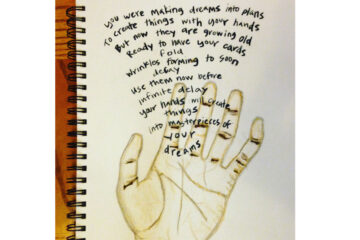 You were making dreams into plans
To create things with your hands
But now they are growing old
Ready to have your cards
fold
wrinkles forming to soon
decay
use them now before
infinite delay
your hands will create
things
into masterpieces of
your
dreams